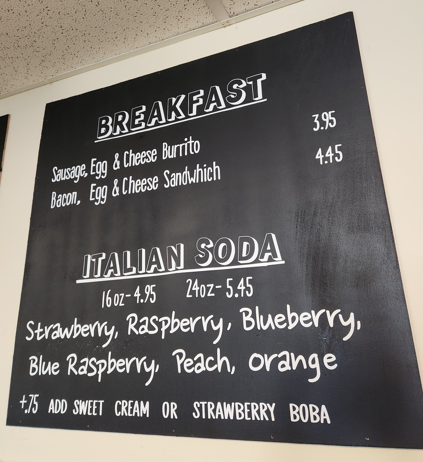 BREAKFAST
Sausage, Egg & Cheese Burrito 3.95
Bacon, Egg & Cheese Sandwhich 4.45
ITALIAN SODA
16oz-4.95 24oz-5.45
Strawberry, Raspberry, Blueberry,
Blue Raspberry, Peach, orange
+.75 ADD SWEET CREAM OR STRAWBERRY BOBA